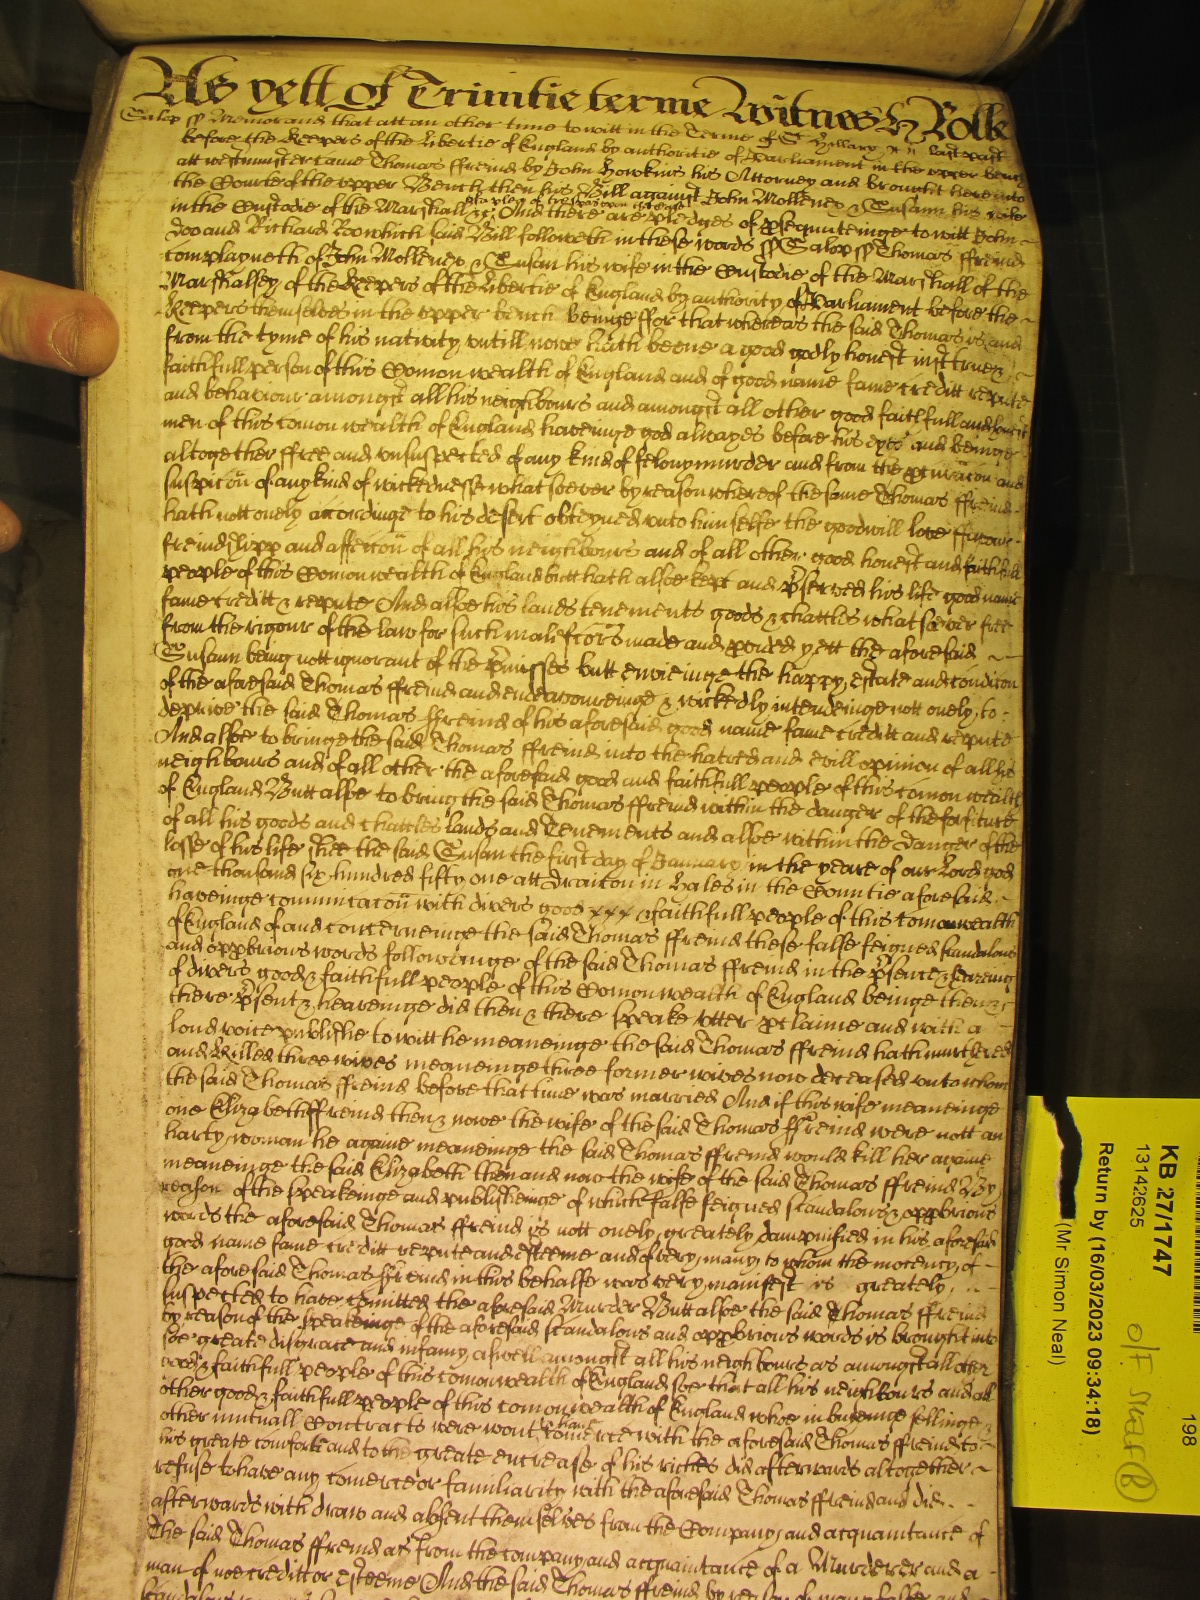 As yett Of Trinitie terme Witnes H Rolle
Salop ss Memorand that att an other time to witt in the Terme of St Hillary last past
before the Keepers of the Libertie of England by authoritie of Parliament in the upper bench
att westminster came Thomas ffreind by John Howkins his Attorney and brought here into
the Courte of the upper Bench then his Bill against John Mollenex & Susann his wife
in the Custodie of the Marshall &c And there are pledges of psequuteinge to witt John
a plea of trespas upon the case
Doo and Richard Roo which said Bill followeth in these words ss Salop ss Thomas ffreind
complayneth of John Mollenex & Susan his wife in the Custodie of the Marshall of the
Marshalsey of the Keepers of the Libertie of England by authority of Parliament before the
Keepers themselves in the upper bench beinge ffor that whereas the said Thomas is and
from the tyme of his nativity untill nowe hath beene a good godly honest just true &
faithfull person of this Comon wealth of England and of good name fame creditt repute
and behaviour amongst all his neighbours and amongst all other good faithfull and honest
men of this Comon wealth of England haveinge god alwayes before his eyes and beinge
altogether ffree and unsuspected of any kind of felony murder and from the and
suspicōn of any kind of wickednesse whatsoever by reason whereof the same Thomas ffreind
hath nott onely accordinge to his desert obteyned unto himselfe the goodwill love ffavour
freindshipp and affeccōn of all his neighbours and of all other good honest and faithfull
people of this Comon wealth of England butt hath alsoe kept and pserved his life good name
fame creditt & repute And alsoe his lands tenements goods & chattles whatsoever free
from the rigour of the law for such malifactors made and pvided yett the aforesaid
Susann being nott ignorant of the pmisses butt envieinge the happy estate and condicon
of the aforesaid Thomas ffreind and endeavoureinge & wickedly intendeinge nott onely to
deprive the said Thomas ffreind of his aforesaid good name fame creditt and repute
And alsoe to bringe the said Thomas ffreind into the hatred and evill opinion of all his
neighbours and of all other the aforesaid good and faithfull people of this comon wealth
of England Butt alsoe to bring the said Thomas ffreind within the danger of the forfiture
of all his goods and chattles lands and Tenements and alsoe within the danger of the
losse of his life shee the said Susan the first day of January in the yeare of our Lord god
one thousand six hundred fifty one att Draiton in Hales in the Countie aforesaid
haveinge communicacōn with divers good xxx faithfull people of this comonwealth
of England of and concerneinge the said Thomas ffreind these false feigned scandalous
and oppbrious words followeinge of the said Thomas ffreind in the psence & heareing
of divers good & faithfull people of this Comonwealth of England beinge then &
there psent & heareinge did then & there speake utter pclaime and with a
loud voice publishe to witt he meaneinge the said Thomas ffreind hath murthered
and Killed three wives meaneinge three former wives now deceased unto whom
the said Thomas ffreind before that time was married And if this wife meaneinge
one Elizabeth ffreind then & nowe the wife of the said Thomas ffreind were nott an
harty woman he againe meaneinge the said Thomas ffreind would kill her againe
meaneinge the said Elizabeth then and now the wife of the said Thomas ffreind By
reason of the speakeinge and publisheinge of which false feigned scandalous & oppbrious
words the aforesaid Thomas ffreind is nott onely greately dampnified in his aforesaid
good name fame creditt repute and esteeme and of very many to whom the inocency of
the aforesaid Thomas ffreind in this behalfe was very manifest is greately
suspected to have comitted the aforesaid Murder Butt alsoe the said Thomas ffreind
by reason of the speakeinge of the aforesaid scandalous and oppbrious words is brought into
soe greate disgrace and infamy aswell amongst all his neighbours as amongst all other
good & faithfull people of this comonwealth of England soe that all his neighbours and all
other good & faithfull people of this comon wealth of England whoe in buyeinge sellinge &
other mutuall Contracts were wont to comerce with the aforesaid Thomas ffreind to
have
his greate comforte and to the greate encrease of his riches did afterwards altogether
refuse to have any comerce or familiarity with the aforesaid Thomas ffreind and did
afterwards withdraw and absent themselves from the Company and acquaintance of
The said Thomas ffreind as from the company and acquaintance of a Murderer and a
man of noe creditt or esteeme And the said Thomas ffreind by reason of
KB 27/1747
13142625
Return by (16/03/2023 09:34:18)
(Mr Simon Neal)
198